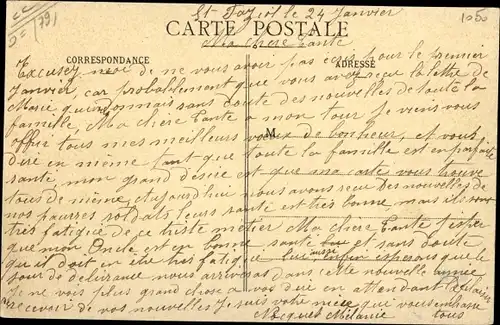 1050
(79)
St Fazıol le 24 Janvier
CARTE POSTALE
Ma chere Tante
CORRESPONDANCE
ADRESSE
Excusez moi de ne vous avoir pas ecris pour le premier
Janvier, car probablement que vous avez reçu la lettre de
Marie qui donnais sans doute des nouvelles de toute la
famille, Ma chère Tante a mon tour je viens vous
offrir tous mes meilleurs vœux de bonheur, et vous
M
dire en même tant que toute la famille est en parfaite
santé, mon grand désire est que ma carte vous trouve
tous de même, aujourd'hui nous avons reçu des nouvelles de
nos pauvres soldats leurs santé est très bonne mais ils sont
très fatigué de ce triste métier Ma chere Tante j'esper
que mon Oncle est en bonne santé et sans doute
qu'il doit en être très fatigué lui aussi enfin esperons que le
jour de delivrance nous arrivera dans cette nouvelle année
Je ne vois plus grand chose a vous dire en attendant le plaisir
recevoir de vos nouvelles Je suis votre nièce qui vous embrasse
Nocques Mélanie tous